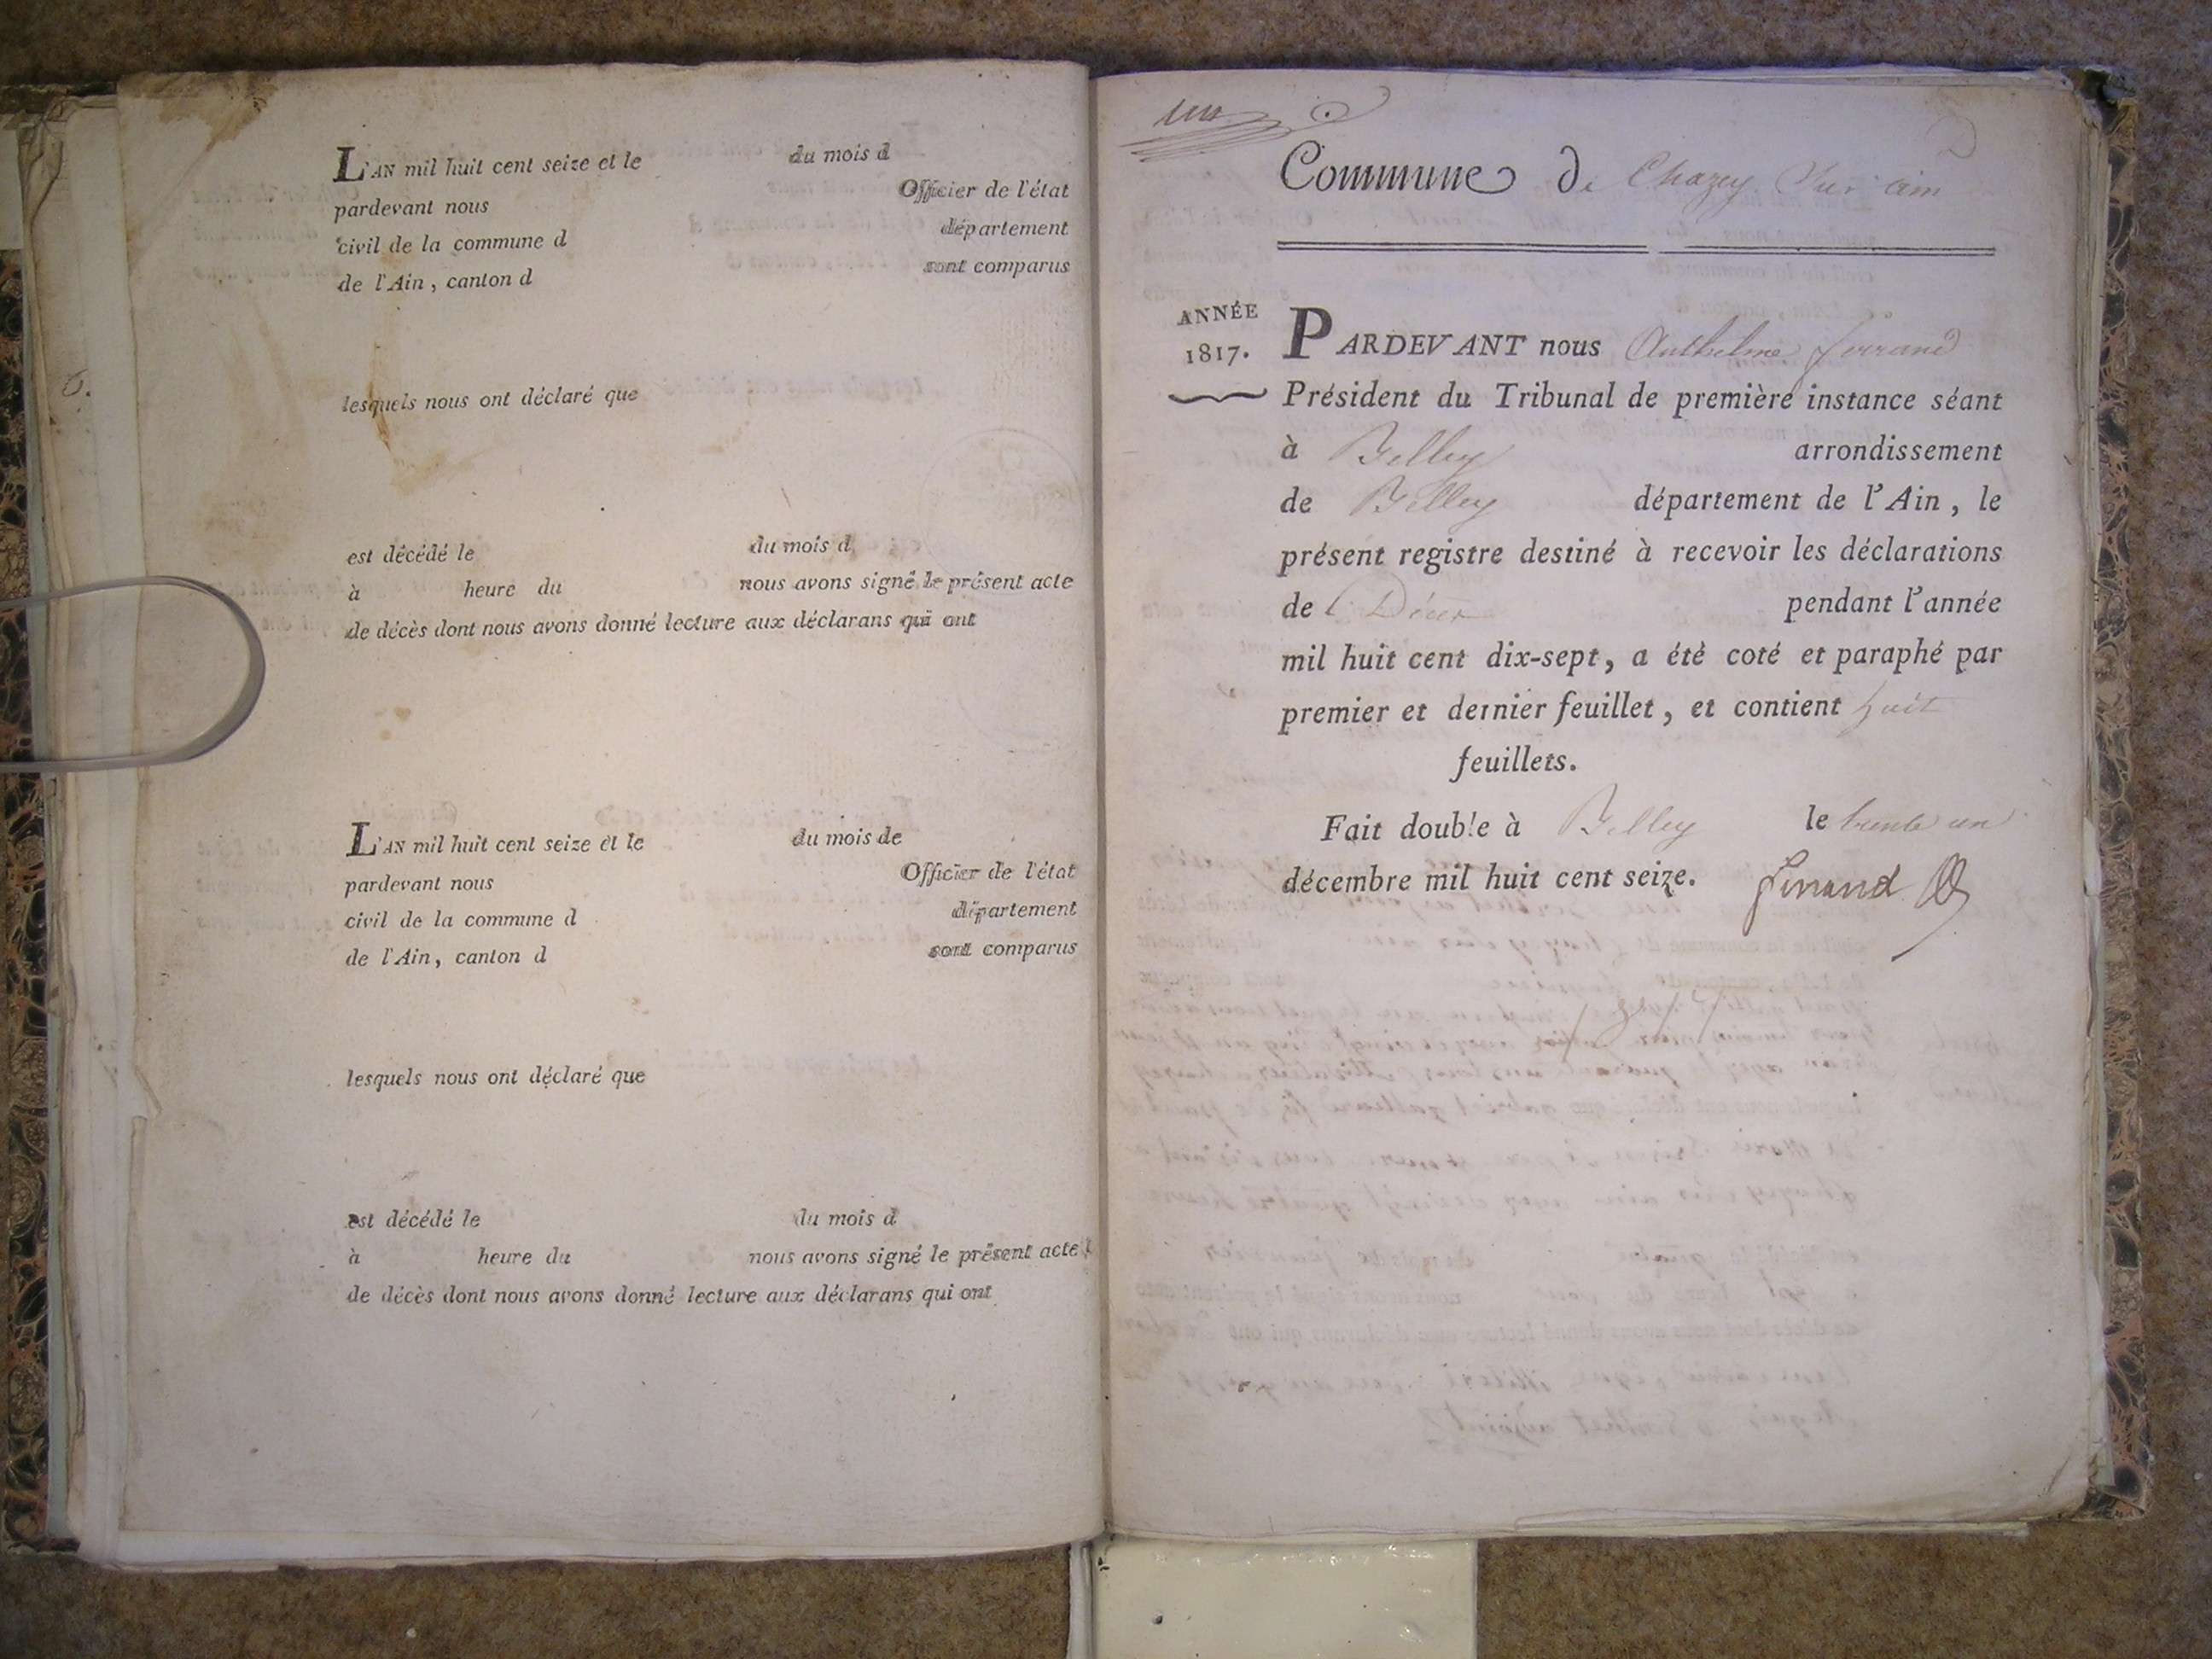 L'AN mil huit cent seize et le du mois d
pardevant nous Officier de l'état
civil de la commune d département
de l'Ain, canton d sont comparus
lesquels nous ont déclaré que
est décédé le du mois d
à heure du nous avons signé le présent acte
de décès dont nous avons donné lecture aux déclarans qui ont
L'AN mil huit cent seize et le du mois de
pardevant nous Officier de l'état
civil de la commune d département
de l'Ain, canton d sont comparus
lesquels nous ont déclaré que
est décédé le du mois d
à heure du nous avons signé le présent acte
de décès dont nous avons donné lecture aux déclarans qui ont
un
Commune de Chazey Sur ain
ANNÉE
1817.
PARDEVANT nous Anthelme ferrand
Président du Tribunal de première instance séant
à Belley arrondissement
de Belley département de l'Ain, le
présent registre destiné à recevoir les déclarations
de Décès pendant l'année
mil huit cent dix-sept, a été coté et paraphé par
premier et dernier feuillet, et contient huit
feuillets.
Fait double à Belley le trente un
décembre mil huit cent seize. ferrand
1817